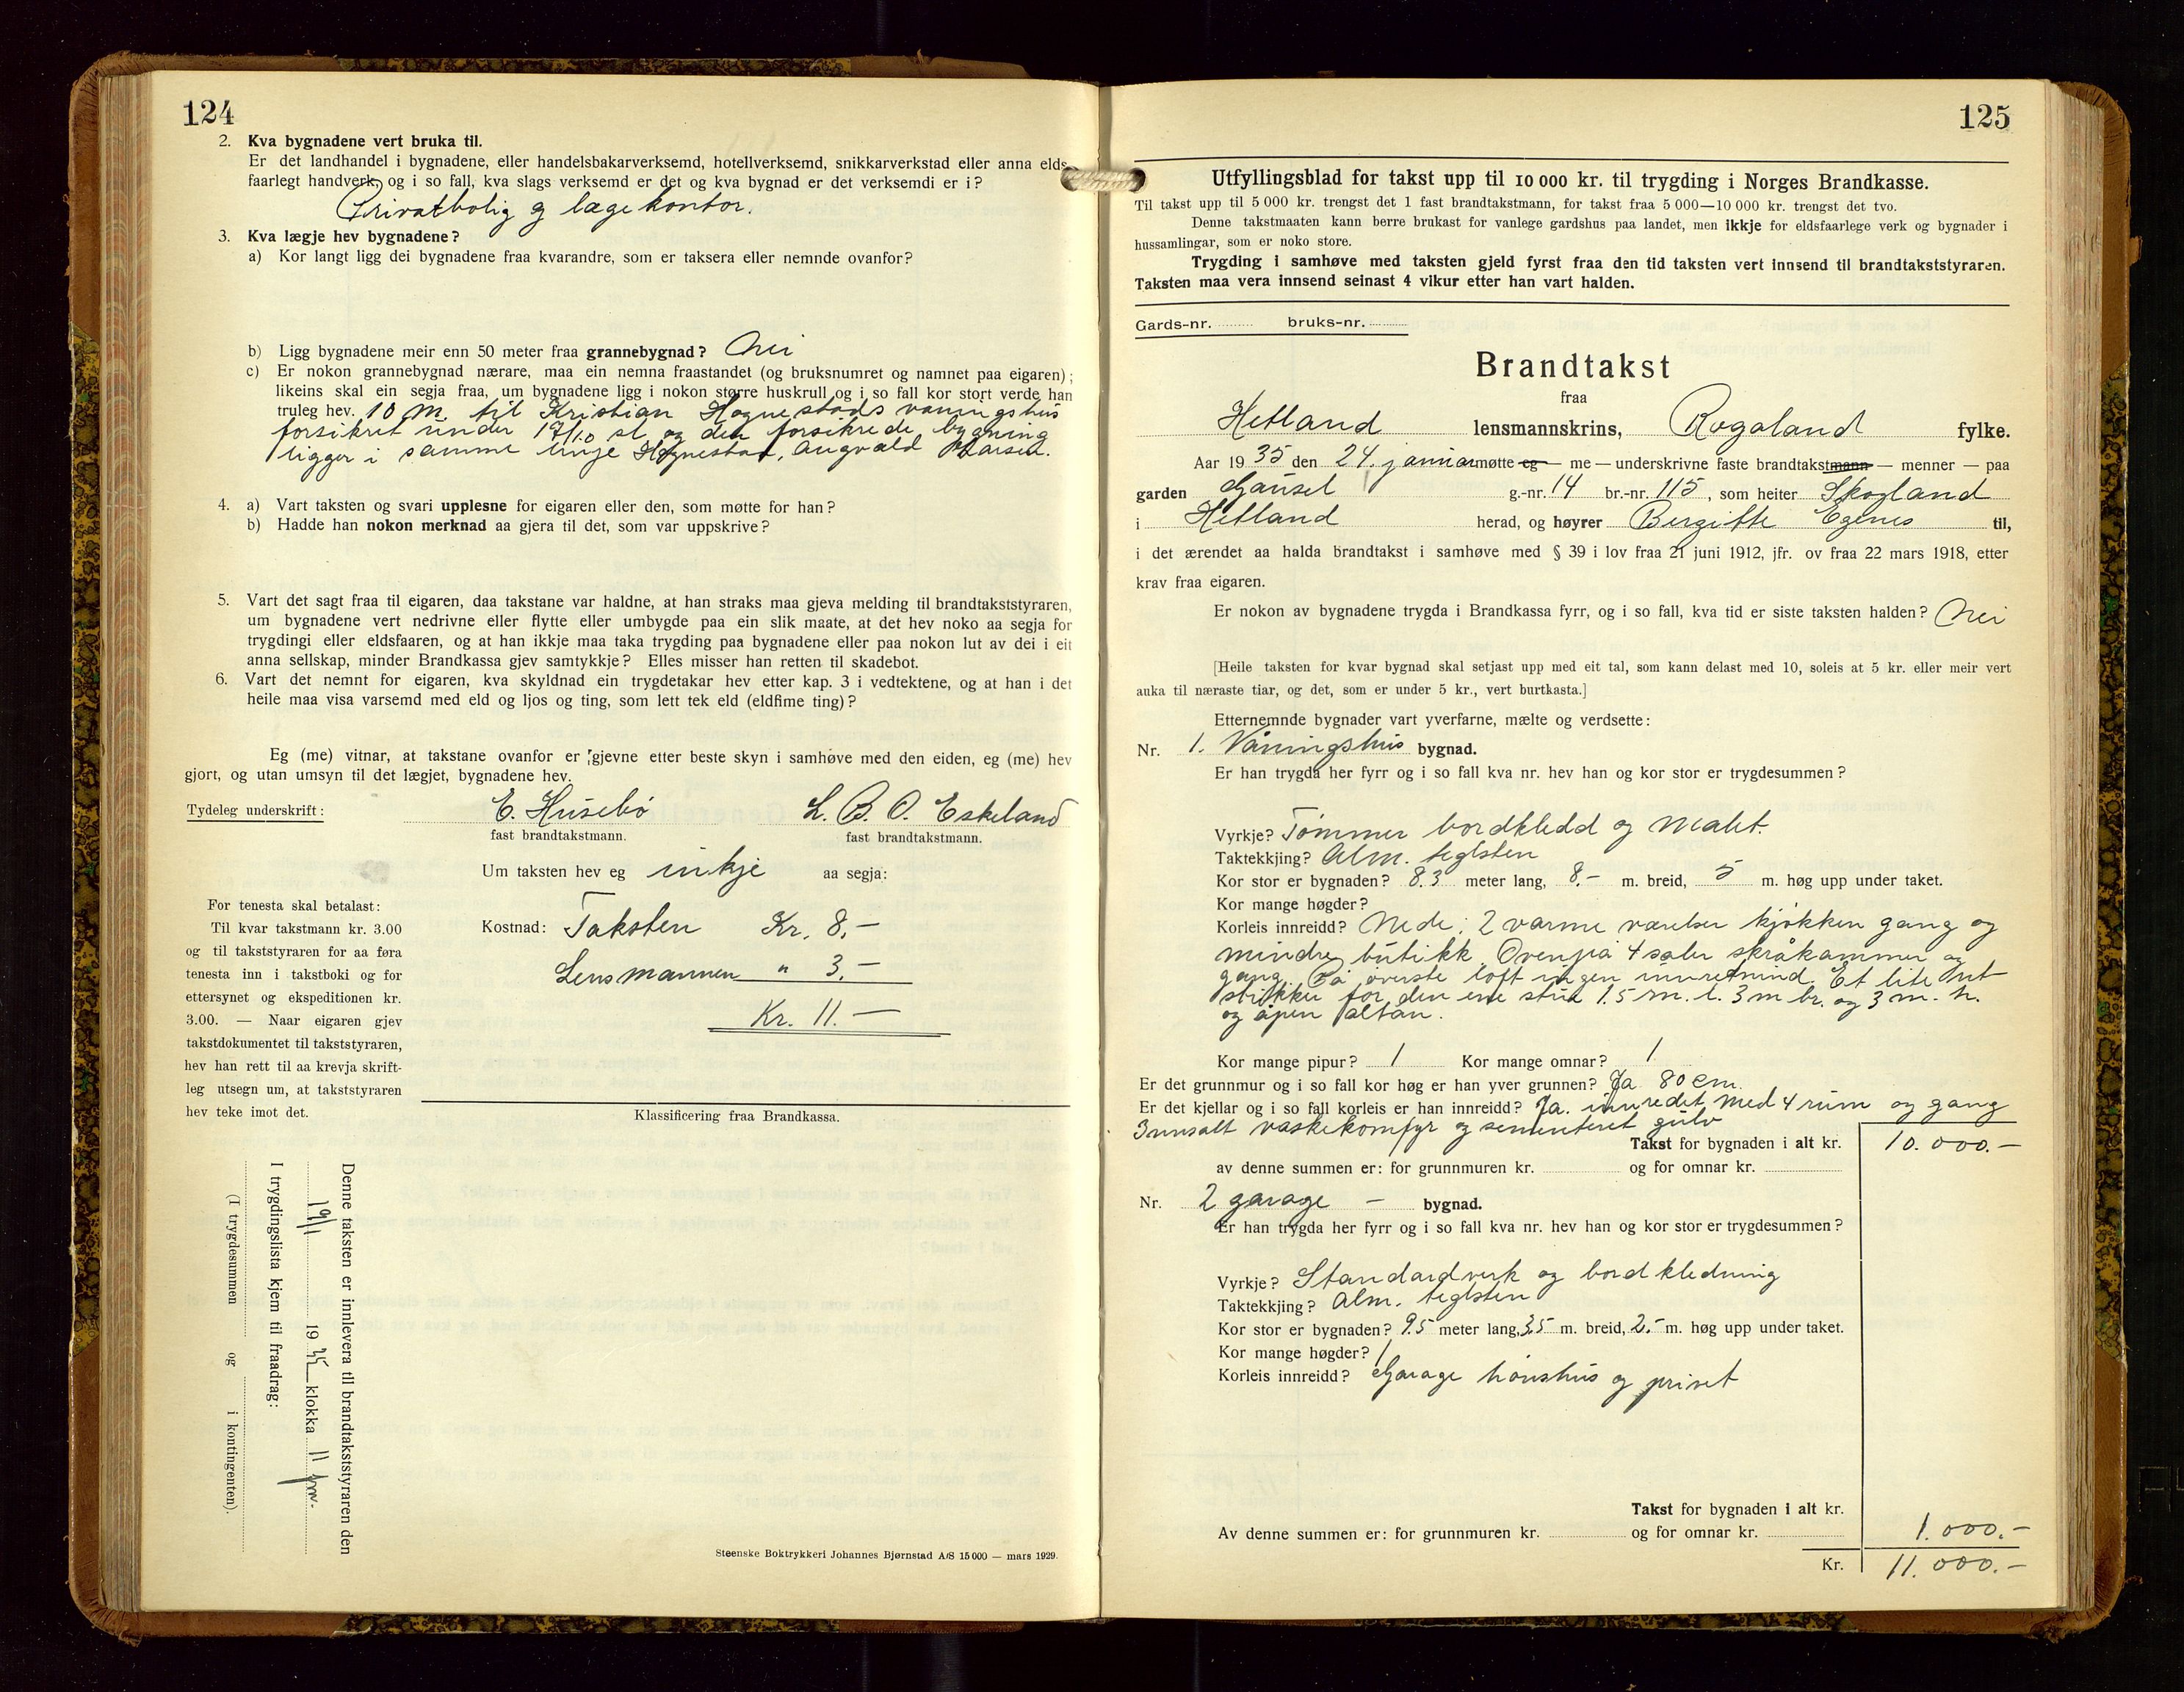 124
2. Kva bygnadene vert bruka til.
Er det landhandel i bygnadene, eller handelsbakarverksemd, hotellverksemd, snikkarverkstad eller anna elds-
faarlegt handverk, og i so fall, kva slags verksemd er det og kva bygnad er det verksemdi er i?
Privatbolig og lægekontor.
3. Kva lægje hev bygnadene?
a) Kor langt ligg dei bygnadene fraa kvarandre, som er taksera eller nemnde ovanfor?
b) Ligg bygnadene meir enn 50 meter fraa grannebygnad? Nei
c) Er nokon grannebygnad nærare, maa ein nemna fraastandet (og bruksnumret og namnet paa eigaren);
likeins skal ein segja fraa, um bygnadene ligg i nokon større huskrull og i so fall kor stort verde han
truleg hev. 10 m. til Kristian Hognestads vaningshus
forsikret under og den forsikrede bygning
ligger i samme linje Hognestad, Angvald
4. a) Vart taksten og svari upplesne for eigaren eller den, som møtte for han?
b) Hadde han nokon merknad aa gjera til det, som var uppskrive?
5. Vart det sagt fraa til eigaren, daa takstane var haldne, at han straks maa gjeva melding til brandtakststyraren,
um bygnadene vert nedrivne eller flytte eller umbygde paa ein slik maate, at det hev noko aa segja for
trygdingi eller eldsfaaren, og at han ikkje maa taka trygding paa bygnadene eller paa nokon lut av dei i eit
anna sellskap, minder Brandkassa gjev samtykkje? Elles misser han retten til skadebot.
6. Vart det nemnt for eigaren, kva skyldnad ein trygdetakar hev etter kap. 3 i vedtektene, og at han i det
heile maa visa varsemd med eld og ljos og ting, som lett tek eld (eldfime ting)?
Eg (me) vitnar, at takstane ovanfor er gjevne etter beste skyn i samhøve med den eiden, eg (me) hev
gjort, og utan umsyn til det lægjet, bygnadene hev.
Tydeleg underskrift: E. Husebø L. B. O. Eskeland
fast brandtakstmann. fast brandtakstmann.
Um taksten hev eg inkje aa segja:
For tenesta skal betalast:
Til kvar takstmann kr. 3.00
og til takststyraren for aa føra
tenesta inn i takstboki og for
ettersynet og ekspeditionen kr.
3.00. — Naar eigaren gjev
takstdokumentet til takststyraren,
hev han rett til aa krevja skrift-
leg utsegn um, at takststyraren
hev teke imot det.
Kostnad: Taksten Kr. 8,-
Lensmannen " 3.-
Kr. 11.-
Klassificering fraa Brandkassa.
Denne taksten er innlevera til brandtakststyraren den
19/1 1935 klokka 11 fm.
I trygdingslista kjem til fraadrag:
(I trygdesummen og i kontingenten).
Steenske Boktrykkeri Johannes Bjørnstad A/S 15000 — mars 1929.
125
Utfyllingsblad for takst upp til 10 000 kr. til trygding i Norges Brandkasse.
Til takst upp til 5 000 kr. trengst det 1 fast brandtakstmann, for takst fraa 5 000—10 000 kr. trengst det tvo.
Denne takstmaaten kann berre brukast for vanlege gardshus paa landet, men ikkje for eldsfaarlege verk og bygnader i
hussamlingar, som er noko store.
Trygding i samhøve med taksten gjeld fyrst fraa den tid taksten vert innsend til brandtakststyraren.
Taksten maa vera innsend seinast 4 vikur etter han vart halden.
Gards-nr. bruks-nr.
Brandtakst
fraa
Hetland lensmannskrins, Rogaland fylke.
Aar 1935 den 24. januar møtte eg — me — underskrivne faste brandtakstmann — menner — paa
garden Gausel g.-nr. 14 br.-nr. 115, som heiter Skogland
i Hetland herad, og høyrer Bergitte Egenes til,
i det ærendet aa halda brandtakst i samhøve med § 39 i lov fraa 21 juni 1912, jfr. ov fraa 22 mars 1918, etter
krav fraa eigaren.
Er nokon av bygnadene trygda i Brandkassa fyrr, og i so fall, kva tid er siste taksten halden? Nei
[Heile taksten for kvar bygnad skal setjast upp med eit tal, som kann delast med 10, soleis at 5 kr. eller meir vert
auka til næraste tiar, og det, som er under 5 kr., vert burtkasta.]
Etternemnde bygnader vart yverfarne, mælte og verdsette:
Nr. 1. Våningshus bygnad.
Er han trygda her fyrr og i so fall kva nr. hev han og kor stor er trygdesummen?
Vyrkje? Tømmer bordkledd og malet.
Taktekkjing? Alm. teglsten
Kor stor er bygnaden? 8.3 meter lang, 8.- m. breid, 5 m. høg upp under taket.
Kor mange høgder?
Korleis innreidd? Nede: 2 varme værelser kjøkken gang og
mindre butikk. Ovenpå 4 saler skråkammer og
gang. På øverste loft ingen Et lite ut
stikker for den ene stue 1.5 m. l. 3 m br. og 3 m. h.
og åpen altan.
Kor mange pipur? 1 Kor mange omnar? 1
Er det grunnmur og i so fall kor høg er han yver grunnen? Ja 80 cm.
Er det kjellar og i so fall korleis er han innreidd? Ja. innredet med 4 rum og gang
vaskekomfyr og sementeret gulv
Takst for bygnaden i alt kr. 10.000.-
av denne summen er: for grunnmuren kr. og for omnar kr.
Nr. 2 garage - bygnad.
Er han trygda her fyrr og i so fall kva nr. hev han og kor stor er trygdesummen?
Vyrkje? Standardverk og bordkledning
Taktekkjing? Alm. teglsten
Kor stor er bygnaden? 9.5 meter lang, 3.5 m. breid, 2.- m. høg upp under taket.
Kor mange høgder? 1
Korleis innreidd? Garage hønshus og privet
Takst for bygnaden i alt kr.
Av denne summen er: for grunnmuren kr. og for omnar kr. 1.000.-
Kr. 11.000.-